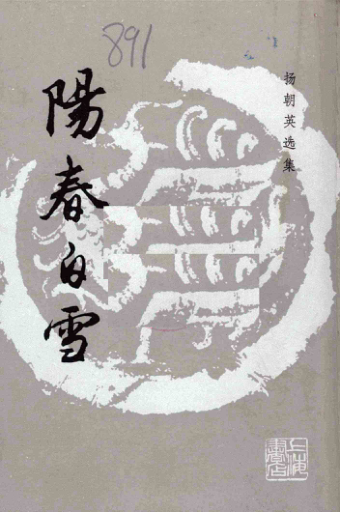 891
陽春白雪
扬朝英选集
上海書店